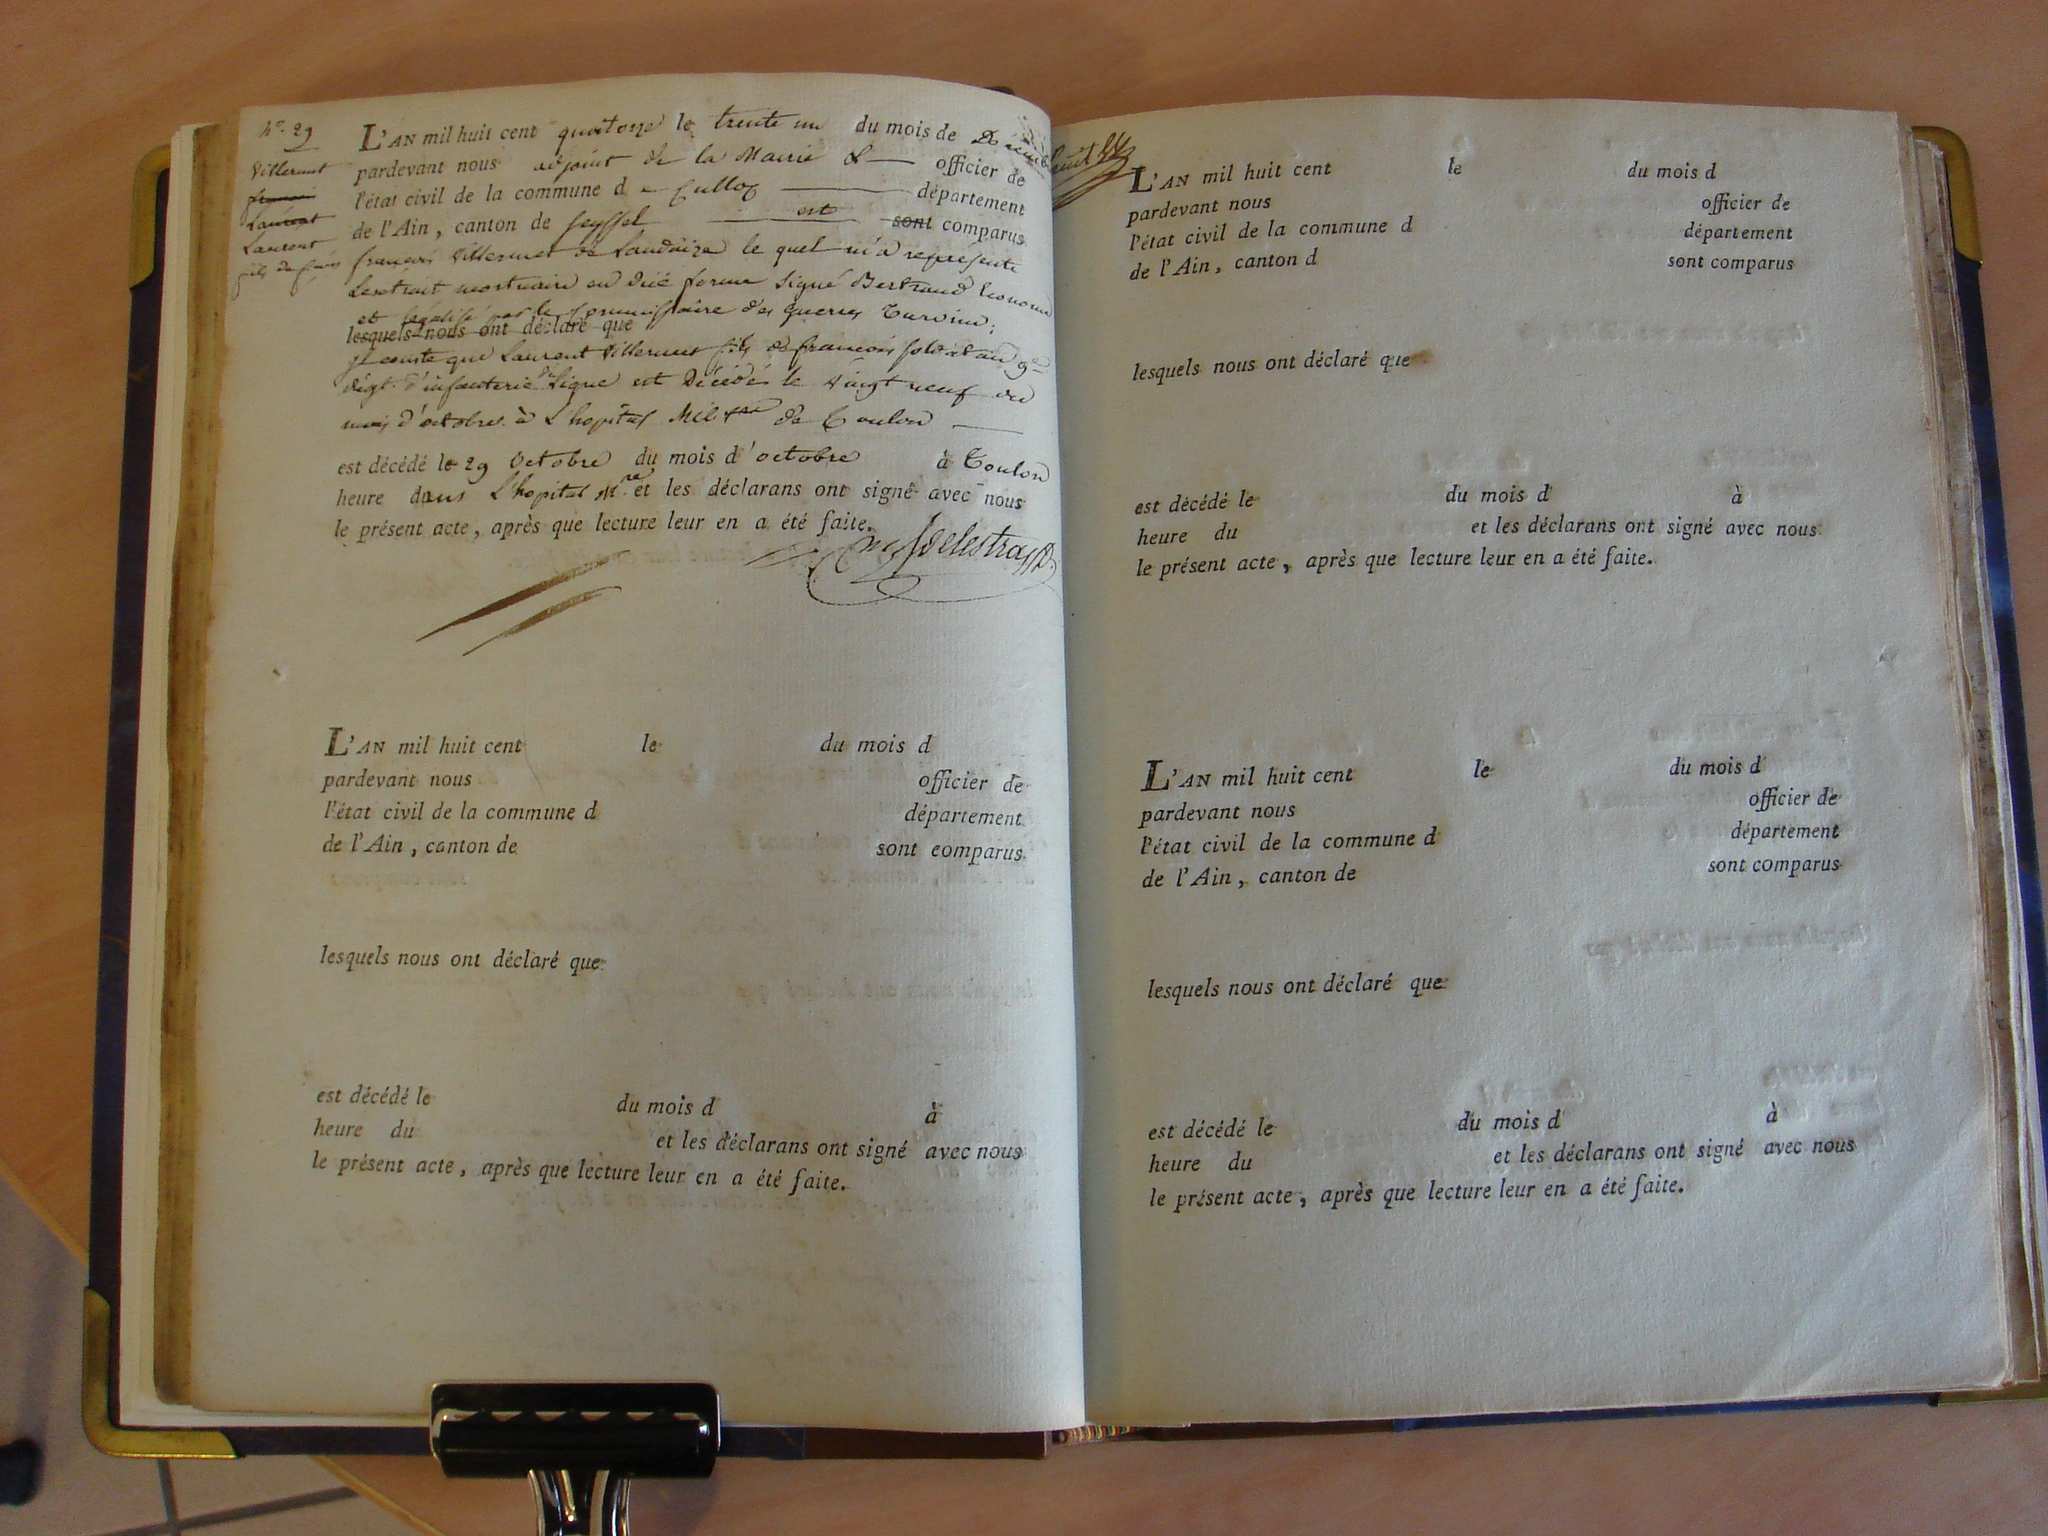 N.° 29
Villermet
françois
Laurent
Laurent
fils de f.çois
L'AN mil huit cent quatorze le trente un du mois de Décembre
pardevant nous adjoint de la Mairie d officier de
l'état civil de la commune de Culloz département
de l'Ain, canton de Seyssel est sont comparus
françois Villermet de Landaize le quel m'a représenté
L'extrait mortuaire en due forme Signé Bertrand Econome
et légalisé par le Commissaire des guerres
lesquels nous ont déclaré que
Il conste que Laurent Villermet fils de françois soldat au 9.e
Régt. d'infanterie de Ligne est Décédé le vingt neuf du
mois d'octobre à L'hopital Mil.re de Toulon
est décédé le 29 Octobre du mois d'octobre à Toulon
heure dans L'hopital M.re et les déclarans ont signé avec nous
le présent acte, après que lecture leur en a été faite.
L'AN mil huit cent le du mois d
pardevant nous officier de
l'état civil de la commune d département
de l'Ain, canton de sont comparus
lesquels nous ont déclaré que
est décédé le du mois d à
heure du et les déclarans ont signé avec nous
le présent acte, après que lecture leur en a été faite.
L'AN mil huit cent le du mois d
pardevant nous officier de
l'état civil de la commune d département
de l'Ain, canton d sont comparus
lesquels nous ont déclaré que
est décédé le du mois d à
heure du et les déclarans ont signé avec nous
le présent acte, après que lecture leur en a été faite.
L'AN mil huit cent le du mois d
pardevant nous officier de
l'état civil de la commune d département
de l'Ain, canton de sont comparus
lesquels nous ont déclaré que
est décédé le du mois d à
heure du et les déclarans ont signé avec nous
le présent acte, après que lecture leur en a été faite.